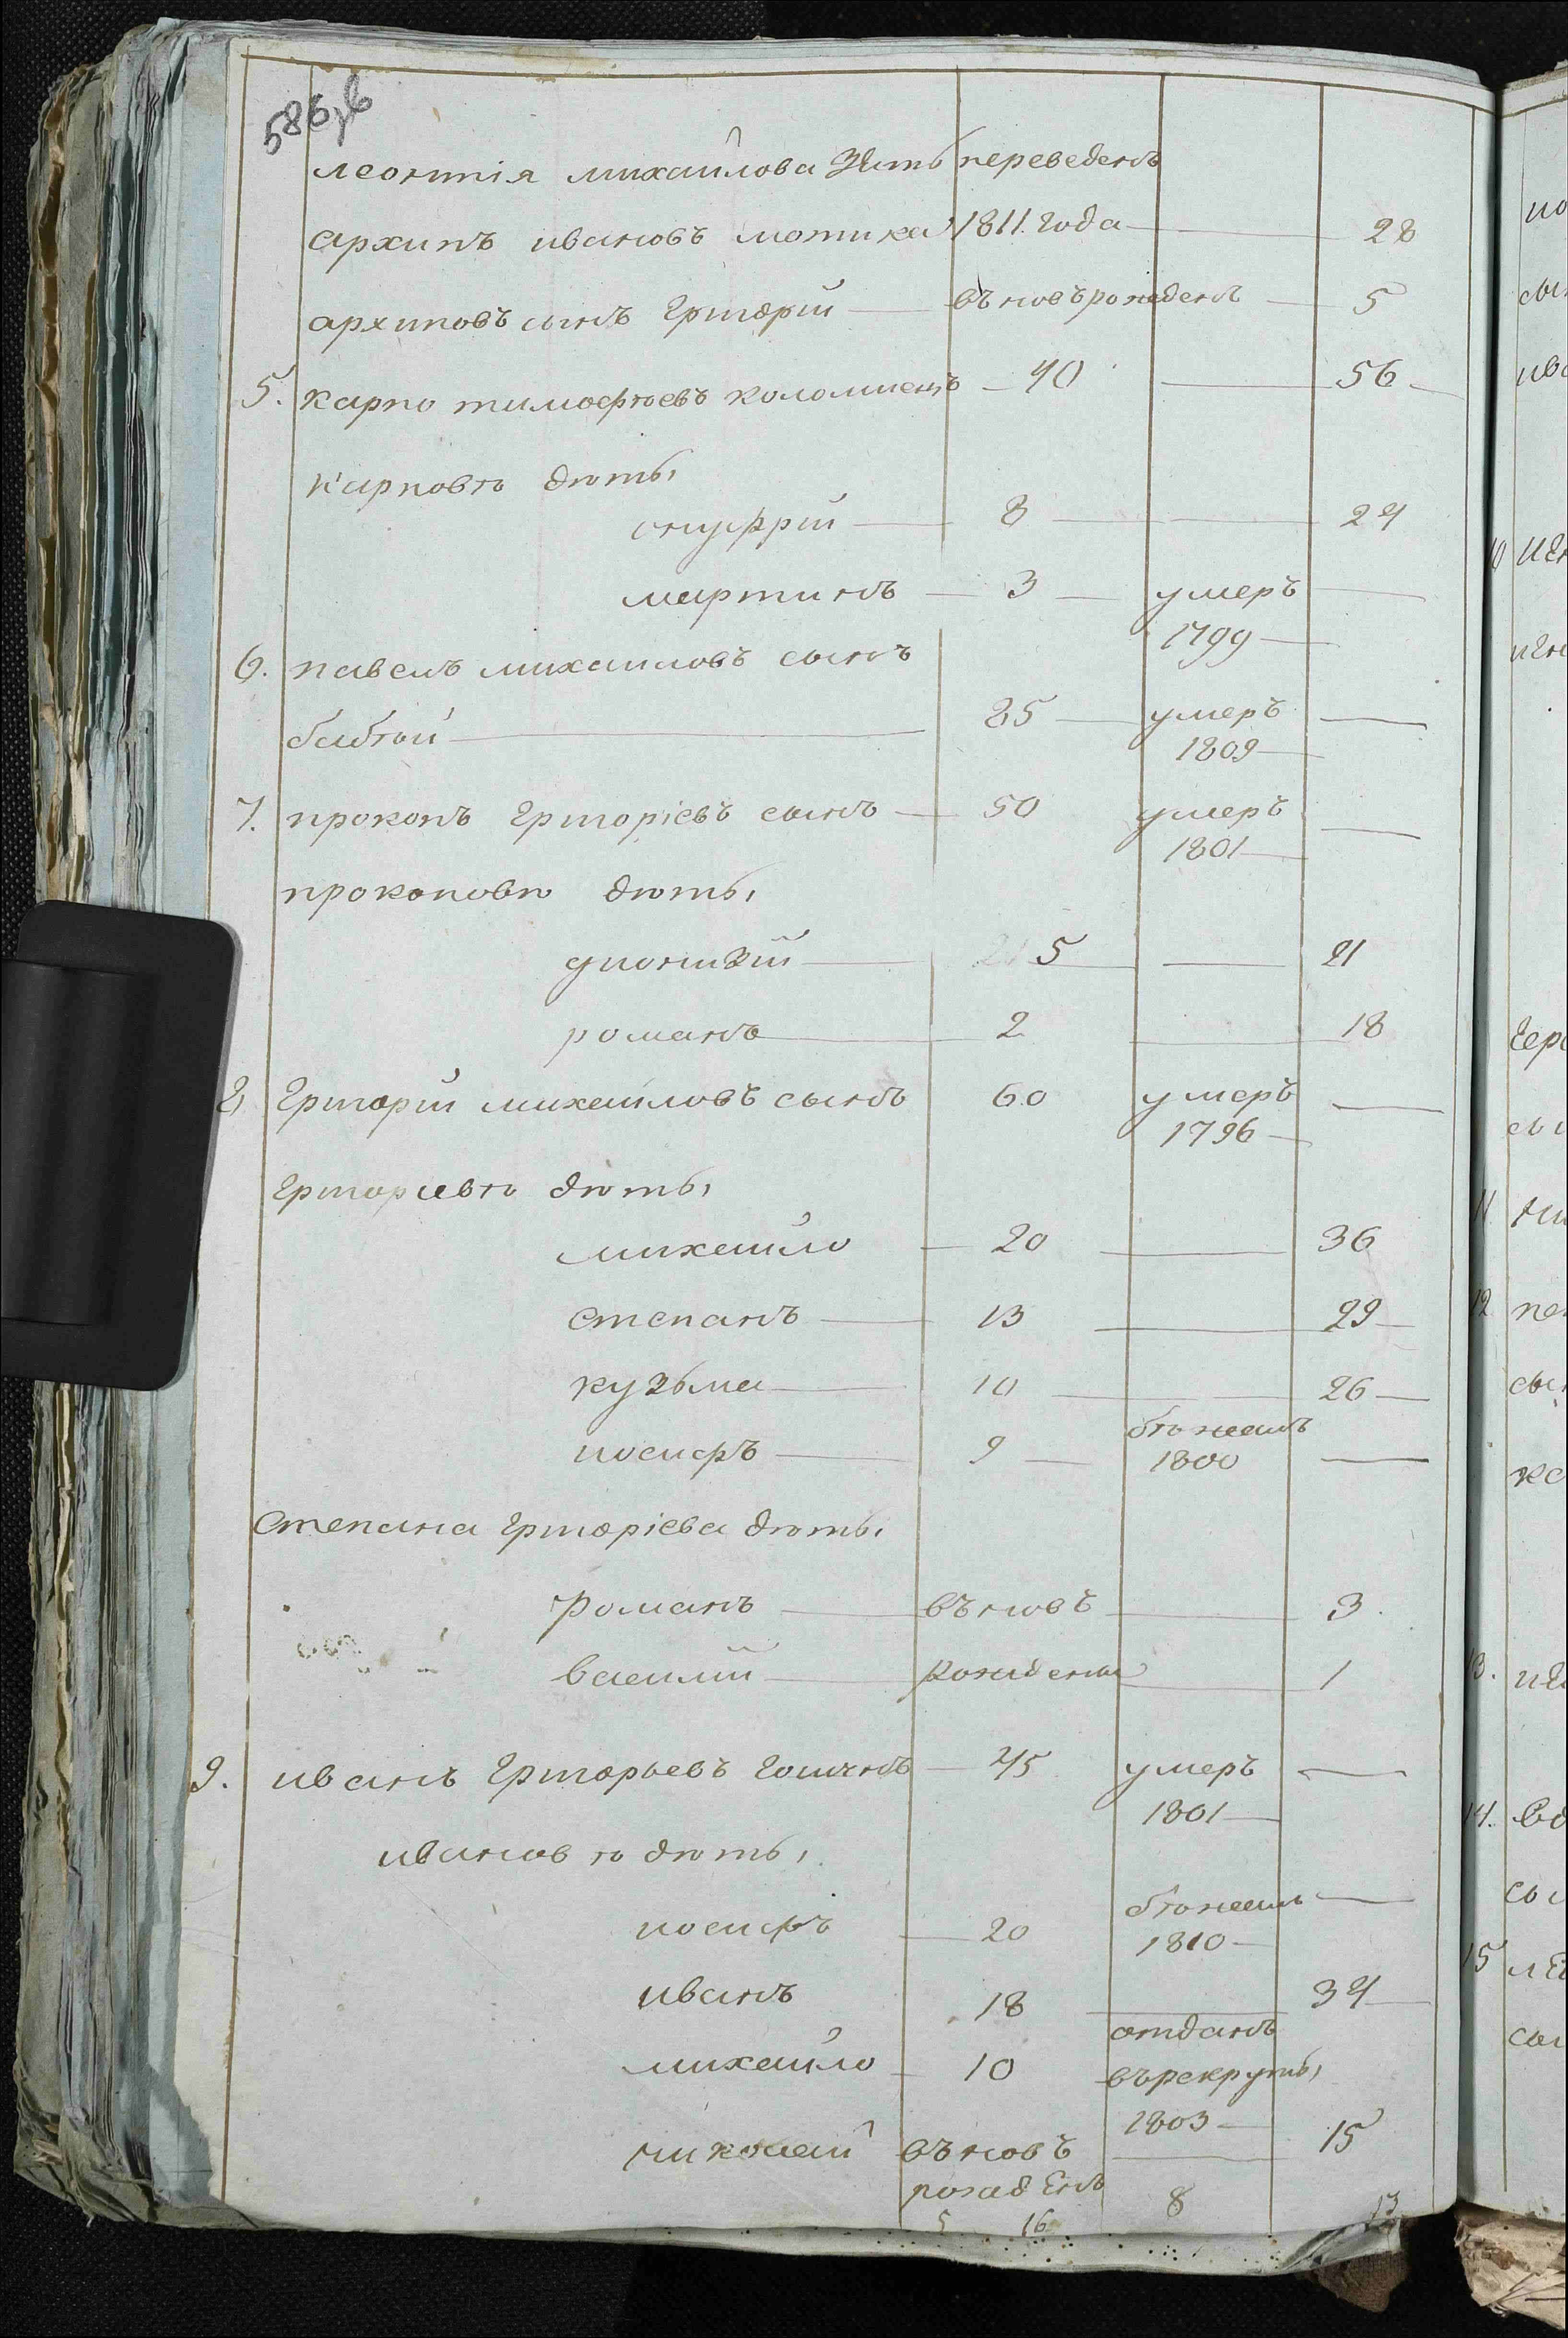 586
леонтія михайлова Зять переведенъ
архипъ ивановъ мотика 1811 года — 28
архиповъ сынъ григорій — въновърожденъ — 5
5. карпо тимофѣевъ коломиецъ — 40 — 56
карповѣ дѣты
онуфрій — 8 — 24
мартинъ — 3 — умеръ —
1799
6. павелъ михаиловъ сынъ
бабѣой — 25 — умеръ —
1809
7. прокопъ григоріевъ сынъ — 50 умеръ —
1801
прокоповѣ дѣты
дионизій — 5 — 21
романъ — 2 — 18
8 григорій михайловъ сынъ 60 умеръ —
1796
григориевѣ дѣты
михайло — 20 — 36
степанъ — 13 — 29
кузьма — 10 — 26
иосифъ — 9 — бѣжалъ —
1800
степана григоріева дѣты
романъ — въновъ — 3
василій — рождены — 1
9. иванъ григорьевъ — 45 умеръ —
1801
ивановѣ дѣты
иосифъ — 20 бѣжалъ —
1810
иванъ 18 — 34
михайло — 10 отданъ
върекруты
1803
николай въновъ — 15
рожденъ
5 16 8 13